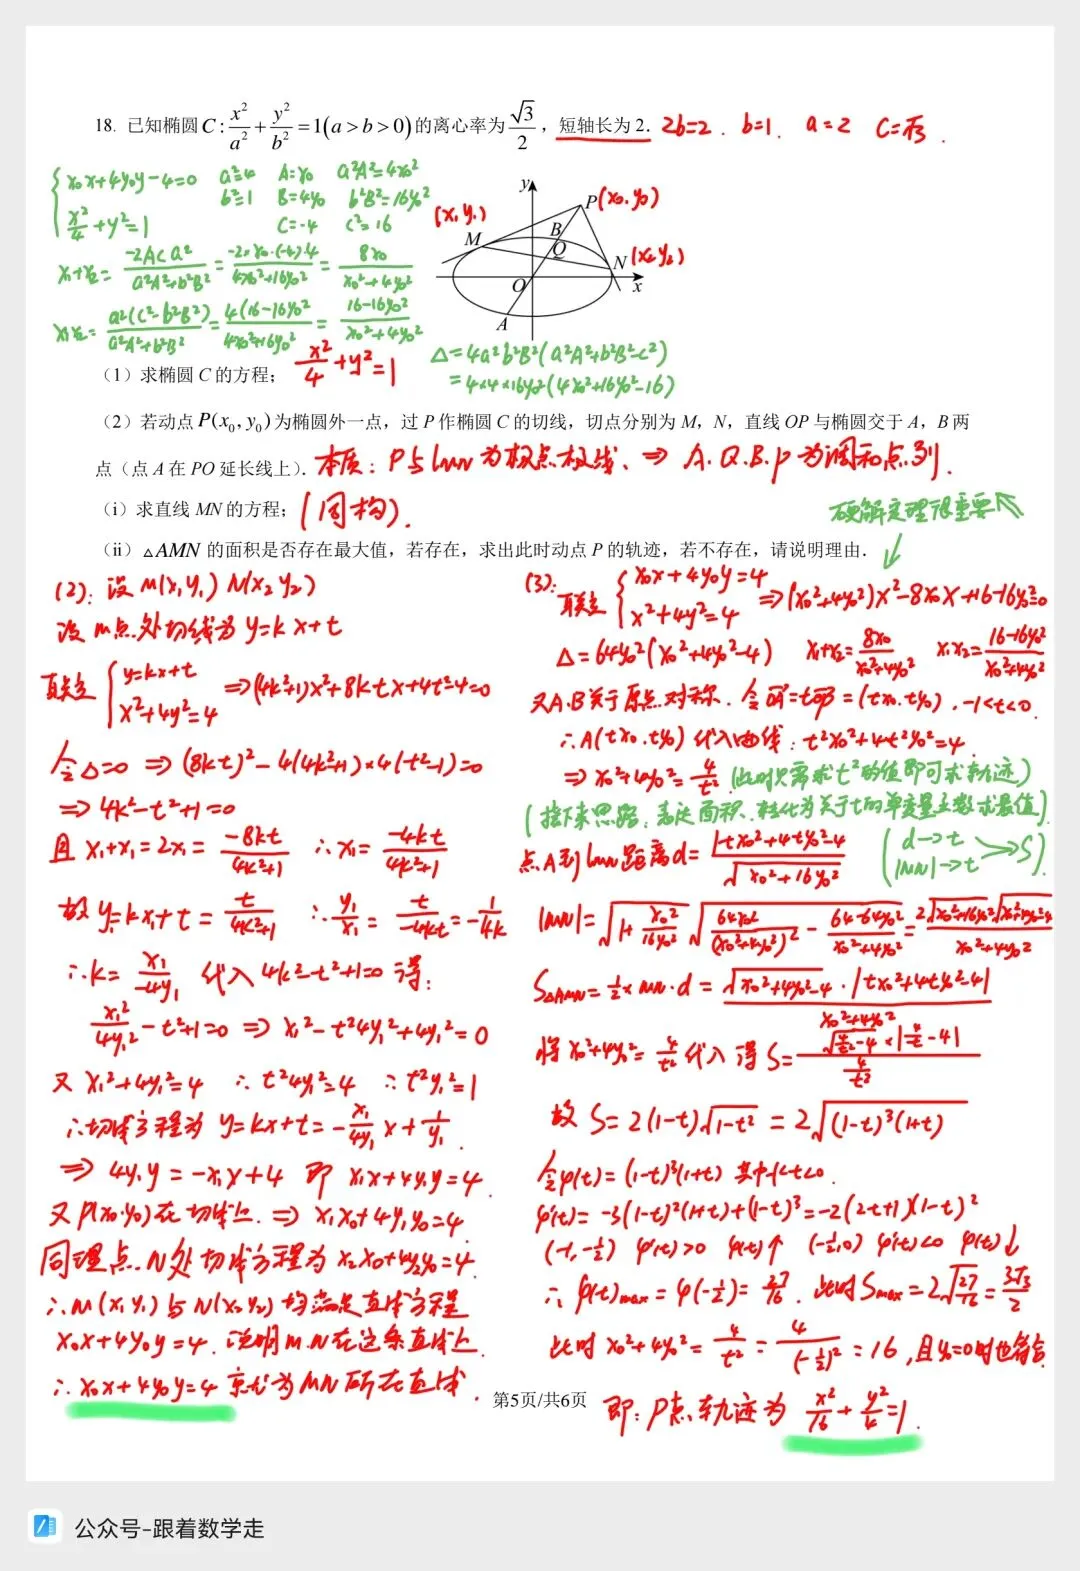 18. 已知椭圆 C: x²/a² + y²/b² = 1(a>b>0) 的离心率为 √3/2，短轴长为 2. 2b=2. b=1. a=2 C=√3.
{ x₀x+4y₀y-4=0 a²=4 A=x₀ a²A²=4x₀²
x²/4+y²=1 b²=1 B=4y₀ b²B²=16y₀²
C=-4 C²=16
x₁+x₂= -2ACa²/(a²A²+b²B²) = -2·x₀·(-4)·4/(4x₀²+16y₀²) = 8x₀/(x₀²+4y₀²)
x₁x₂= a²(C²-b²B²)/(a²A²+b²B²) = 4(16-16y₀²)/(4x₀²+16y₀²) = (16-16y₀²)/(x₀²+4y₀²)
y
P(x₀,y₀)
(x₁y₁)
B
M
Q
N(x₂y₂)
O
x
A
△=4a²b²B²(a²A²+b²B²-C²)
=4×4×16y₀²(4x₀²+16y₀²-16)
（1）求椭圆 C 的方程； x²/4+y²=1
（2）若动点 P(x₀,y₀) 为椭圆外一点，过 P 作椭圆 C 的切线，切点分别为 M，N，直线 OP 与椭圆交于 A，B 两
点（点 A 在 PO 延长线上）. 本质：P与lMN为极点极线、⇒ A.Q.B.P为调和点列.
（i）求直线 MN 的方程； (同构).
硬解定理很重要
（ii）△AMN 的面积是否存在最大值，若存在，求出此时动点 P 的轨迹，若不存在，请说明理由.
(2): 设M(x₁y₁) N(x₂y₂)
设M点处切线为 y=kx+t
联立 { y=kx+t
x²+4y²=4 ⇒(4k²+1)x²+8ktx+4t²-4=0
令△=0 ⇒ (8kt)²-4(4k²+1)×4(t²-1)=0
⇒ 4k²-t²+1=0
且 x₁+x₁=2x₁= -8kt/(4k²+1) ∴x₁= -4kt/(4k²+1)
故 y₁=kx₁+t = t/(4k²+1) ∴ y₁/x₁ = t/-4kt = -1/4k
∴k= x₁/-4y₁ 代入 4k²-t²+1=0 得:
x₁²/4y₁²-t²+1=0 ⇒ x₁²-t²4y₁²+4y₁²=0
又 x₁²+4y₁²=4 ∴t²4y₁²=4 ∴t²y₁²=1
∴切线方程为 y=kx+t=-x₁/4y₁ x+1/y₁.
⇒ 4y₁y=-x₁x+4 即 x₁x+4y₁y=4.
又 P(x₀,y₀)在切线上. ⇒ x₁x₀+4y₁y₀=4.
同理点N处切线方程为 x₂x₀+4y₂y₀=4.
∴M(x₁y₁)与N(x₂y₂)均满足直线方程
x₀x+4y₀y=4. 说明M.N在这条直线上.
∴ x₀x+4y₀y=4 亦为MN所在直线.
(3): 联立 { x₀x+4y₀y=4
x²+4y²=4 ⇒(x₀²+4y₀²)x²-8x₀x+16-16y₀²=0
△=64y₀²(x₀²+4y₀²-4) x₁+x₂=8x₀/(x₀²+4y₀²) x₁x₂=(16-16y₀²)/(x₀²+4y₀²)
又A.B关于原点对称. 令OA=tOP=(tx₀.ty₀). -1<t<0.
∴A(tx₀.ty₀) 代入曲线: t²x₀²+4t²y₀²=4.
⇒ x₀²+4y₀²=4/t² (此时只需求t²的值即可求轨迹)
(接下来思路: 表达面积. 转化为关于t的单变量函数求最值).
点A到lMN距离d= |tx₀²+4ty₀²-4|/√(x₀²+16y₀²) (d→t |MN|→t →S).
|MN|=√(1+x₀²/16y₀²) √(64x₀²/(x₀²+4y₀²)² - (64-64y₀²)/(x₀²+4y₀²)) = 2√(x₀²+16y₀²)√(x₀²+4y₀²-4)/(x₀²+4y₀²)
S△AMN=½×MN·d = √(x₀²+4y₀²-4)·|tx₀²+4ty₀²-4|/(x₀²+4y₀²)
将 x₀²+4y₀²=4/t² 代入得 S= √(4/t²-4)×|4/t-4|/(4/t²)
故 S=2(1-t)√(1-t²) =2√((1-t)³(1+t))
令φ(t)=(1-t)³(1+t) 其中-1<t<0.
φ'(t)=-3(1-t)²(1+t)+(1-t)³=-2(2t+1)(1-t)²
(-1,-½) φ'(t)>0 φ(t)↑ (-½,0) φ'(t)<0 φ(t)↓
∴ φ(t)max=φ(-½)=27/16. 此时Smax=2√(27/16)=3√3/2
此时 x₀²+4y₀²=4/t²=4/(-½)²=16, 且y₀=0时也符合.
即: P点轨迹为 x²/16+y²/4=1.
第5页/共6页
公众号-跟着数学走